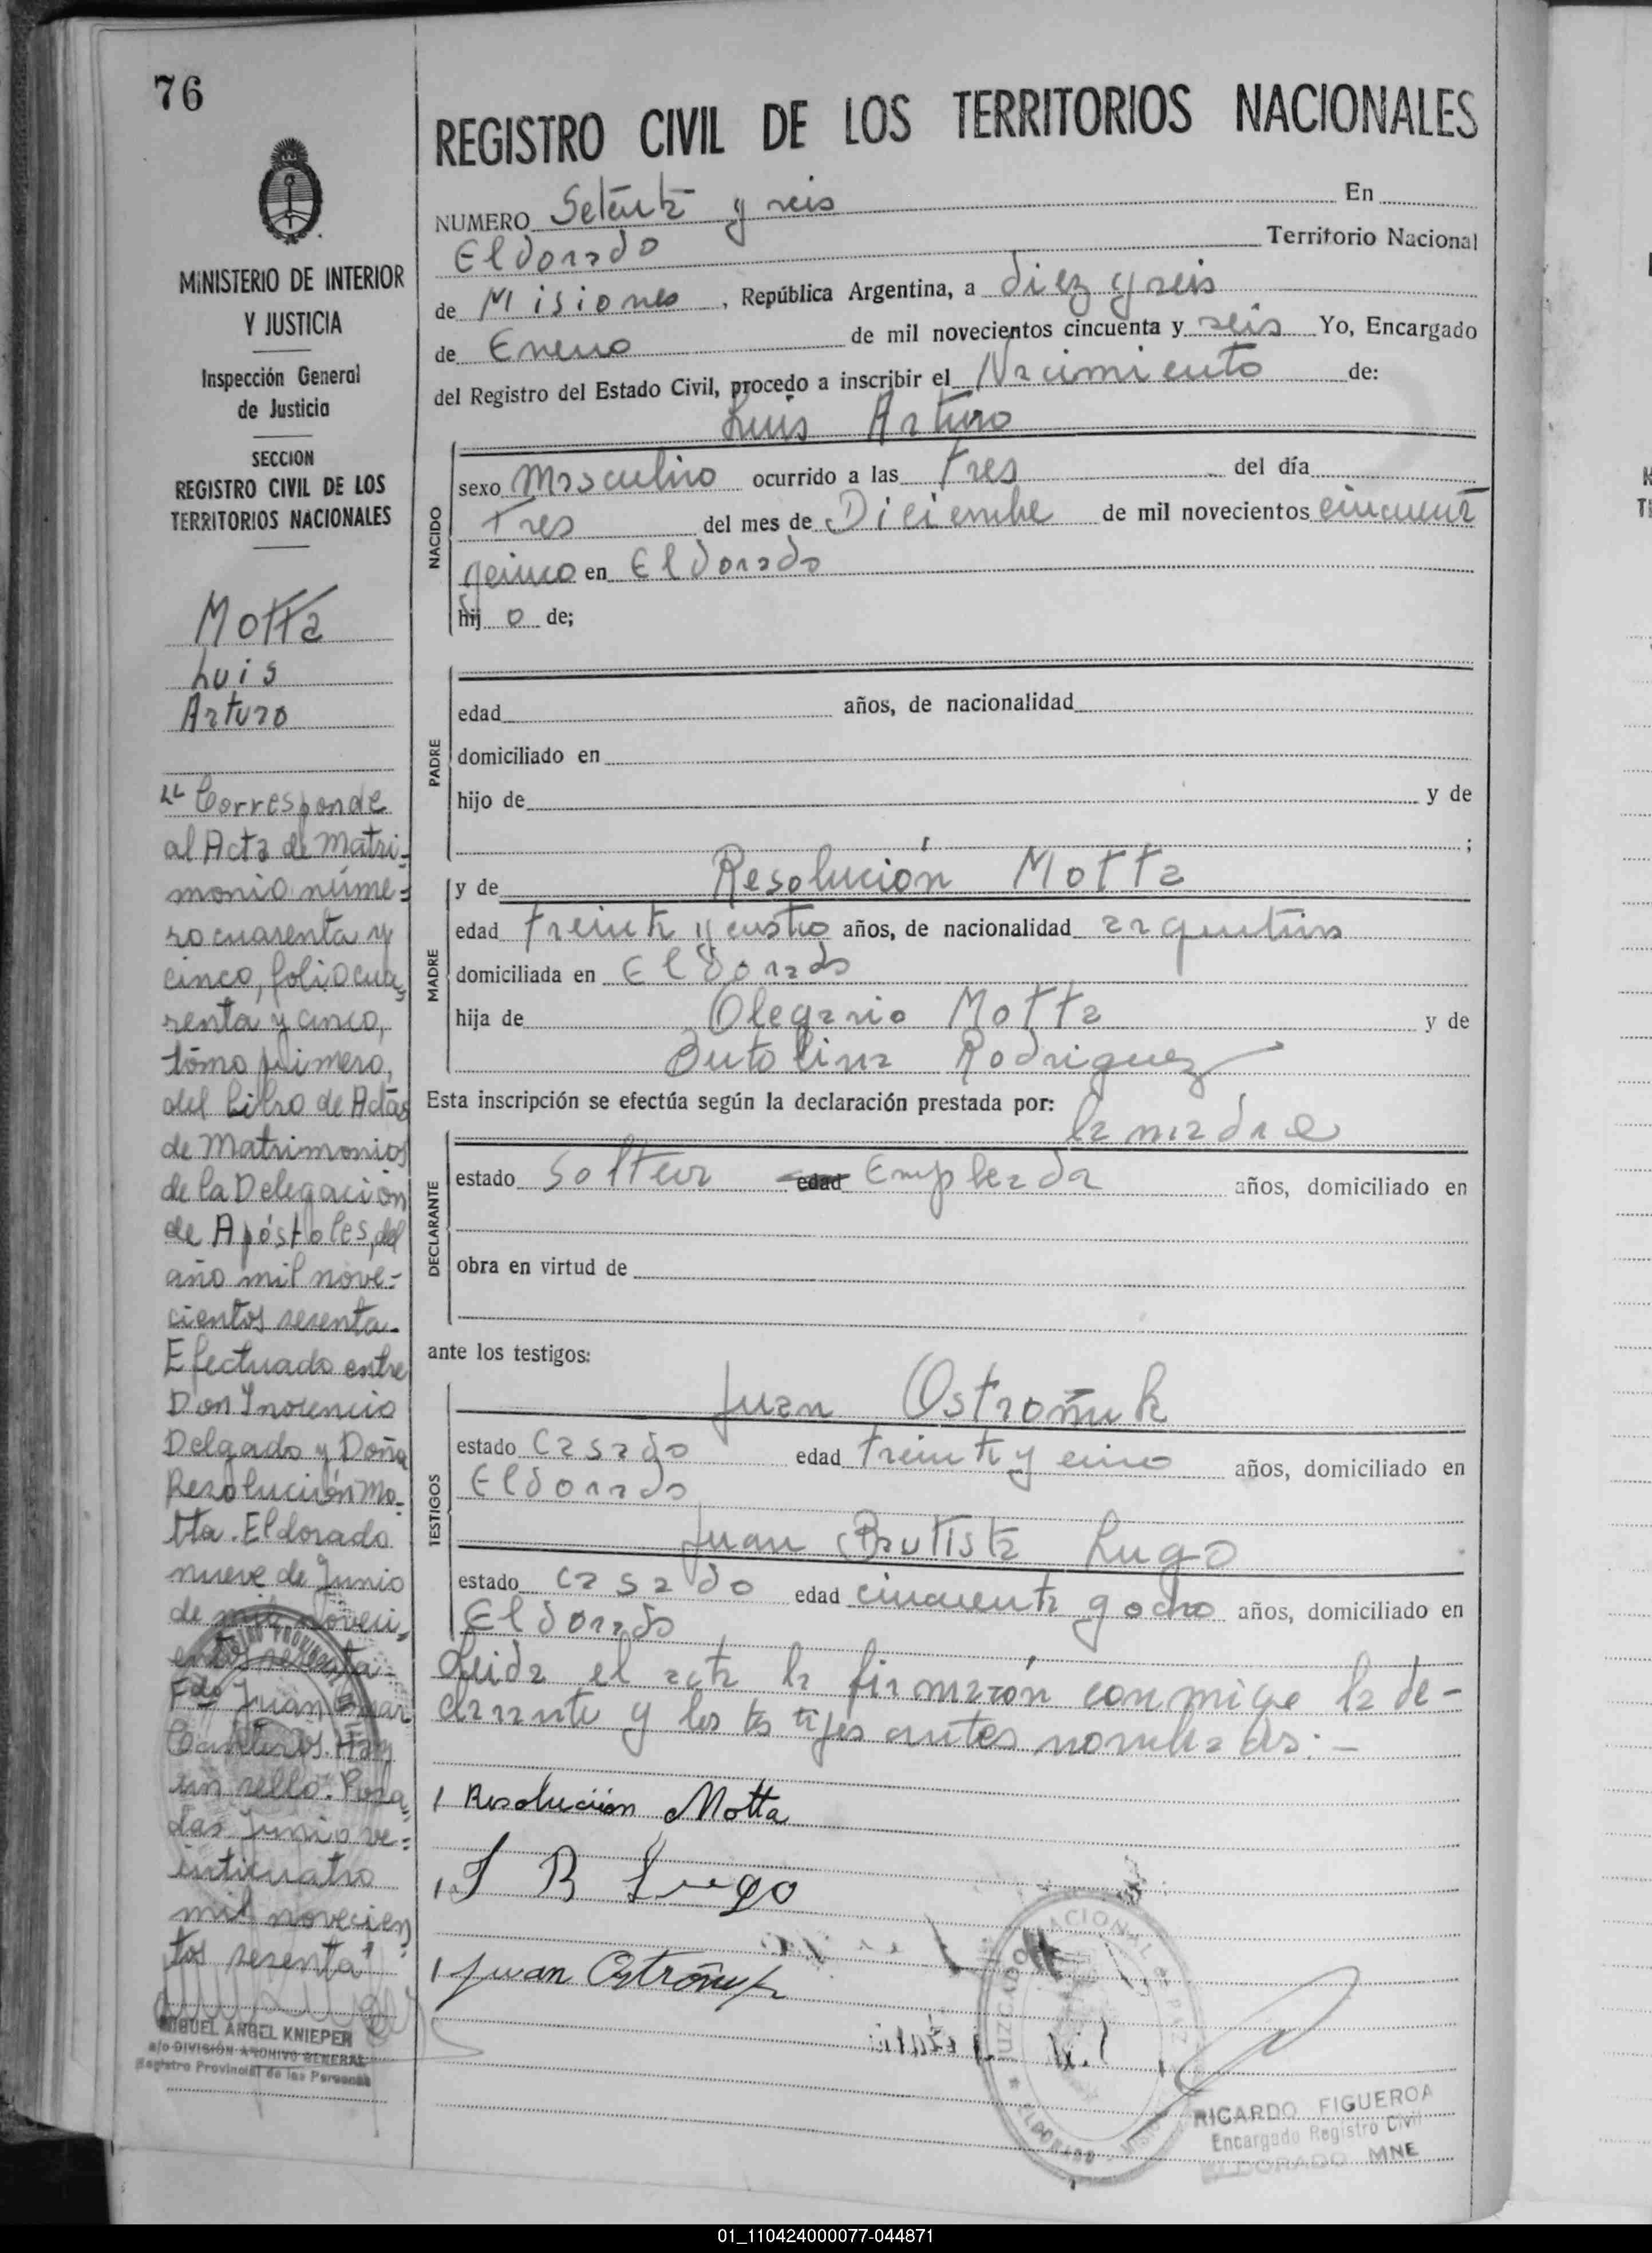 76
MINISTERIO DE INTERIOR
Y JUSTICIA
Inspección General
de Justicia
SECCION
REGISTRO CIVIL DE LOS
TERRITORIOS NACIONALES
Motta
Luis
Arturo
"Corresponde
al Acta de Matri-
monio núme-
ro cuarenta y
cinco, folio cua-
renta y cinco,
tomo primero,
del Libro de Actas
de Matrimonios
de la Delegación
de Apóstoles, del
año mil nove-
cientos sesenta.
Efectuado entre
Don Inocencio
Delgado y Doña
Resolución Mo-
tta. Eldorado
nueve de Junio
de mil noveci-
entos sesenta.-
Fdo Juan
Hay
un sello. Posa-
das Junio ve-
inticuatro
mil novecien
tos sesenta"
MIGUEL ANGEL KNIEPER
a/c DIVISIÓN ARCHIVO GENERAL
Registro Provincial de las Personas
REGISTRO CIVIL DE LOS TERRITORIOS NACIONALES
NUMERO Setenta y seis En
Eldorado Territorio Nacional
de Misiones , República Argentina, a diez y seis
de Enero de mil novecientos cincuenta y seis Yo, Encargado
del Registro del Estado Civil, procedo a inscribir el Nacimiento de:
Luis Arturo
NACIDO
sexo Masculino ocurrido a las tres del día
Tres del mes de Diciembre de mil novecientos cincuenta
y cinco en Eldorado
hij o de;
PADRE
edad años, de nacionalidad
domiciliado en
hijo de y de
;
MADRE
y de Resolución Motta
edad treinta y cuatro años, de nacionalidad argentina
domiciliada en Eldorado
hija de Olegario Motta y de
Rodriguez
Esta inscripción se efectúa según la declaración prestada por:
la madre
DECLARANTE
estado Soltera edad Empleada años, domiciliado en
obra en virtud de
ante los testigos:
TESTIGOS
Juan Ostroñuk
estado Casado edad treinta y cinco años, domiciliado en
Eldorado
Juan Bautista Lugo
estado casado edad cincuenta y ocho años, domiciliado en
Eldorado
Leida el acta la firmarón conmigo la de-
clarante y los testigos antes nombrados:-
Resolución Motta
J B Lugo
Juan Ostroñuk
JUZGADO NACIONAL DE PAZ
ELDORADO
RICARDO FIGUEROA
Encargado Registro Civil
ELDORADO MNE
01_110424000077-044871